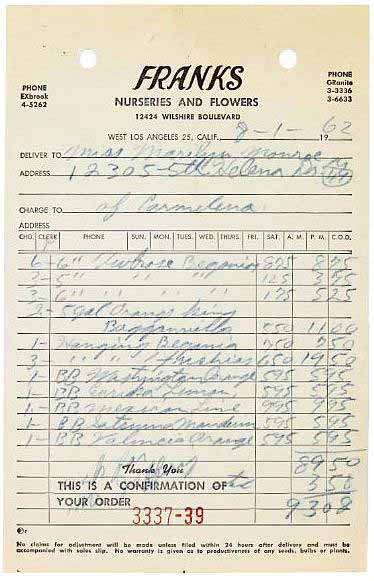 FRANKS
NURSERIES AND FLOWERS
12424 WILSHIRE BOULEVARD
PHONE
EXbrook
4-5262
PHONE
GRanite
3-3336
3-6633
WEST LOS ANGELES 25, CALIF. 8-1- 1962
DELIVER TO Miss Marilyn Monroe
ADDRESS 12305-5th Helena Dr
CHARGE TO of Carmelena
ADDRESS
CHG. CLERK PHONE SUN. MON. TUES. WED. THURS. FRI. SAT. A. M. P. M. C.O.D.
6- 6" Begonias
2- 5" " " 125
3- 6" " " 175 5 25
2- 5 gal Orange King
550 11 00
1- Hanging Begonia 750 7 50
3- " " Fushias 650 19 50
1- BB Washington Orange 595 5 95
1- BB Eureka Lemon 595 5 95
1- BB Mexican Lime 995 9 95
1- BB Satsuma Mandarin 595 5 95
1- BB Valencia Orange 595 5 95
89 50
Thank You
THIS IS A CONFIRMATION OF
3 58
YOUR ORDER
93 08
3337-39
No claims for adjustment will be made unless filed within 24 hours after delivery and must be
accompanied with sales slip. No warranty is given as to productiveness of any seeds, bulbs or plants.